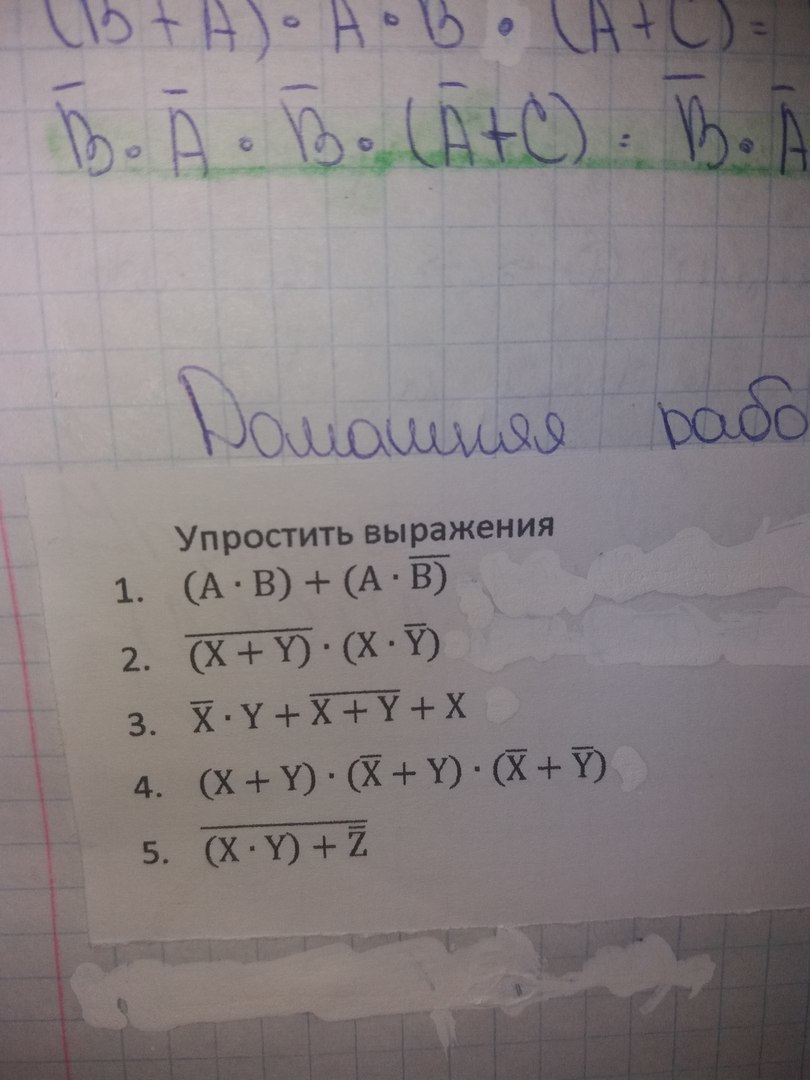 (B + A) · A · B · (A + C) =
B̅ · A̅ · B̅ · (A̅ + C) = B̅ · A̅
Домашняя рабо
Упростить выражения
1. (A · B) + (A · B̅)
2. (X̅ ̅+̅ ̅Y̅) · (X · Y̅)
3. X̅ · Y + X̅ ̅+̅ ̅Y̅ + X
4. (X + Y) · (X̅ + Y) · (X̅ + Y̅)
5. (̅X̅ ̅·̅ ̅Y̅)̅ ̅+̅ ̅Z̿